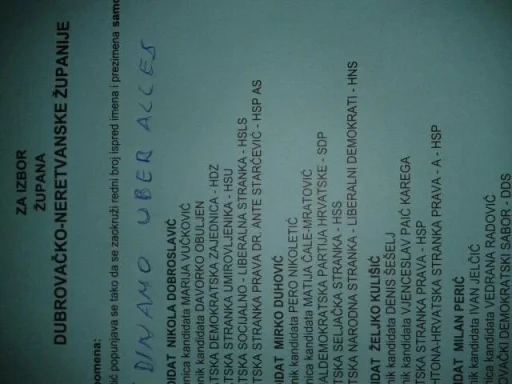 ZA IZBOR
ŽUPANA
DUBROVAČKO-NERETVANSKE ŽUPANIJE
pomena:
ić popunjava se tako da se zaokruži redni broj ispred imena i prezimena samo
DINAMO UBER ALLES
DIDAT NIKOLA DOBROSLAVIĆ
nica kandidata MARIJA VUČKOVIĆ
nik kandidata DAVORKO OBULJEN
TSKA DEMOKRATSKA ZAJEDNICA - HDZ
TSKA STRANKA UMIROVLJENIKA - HSU
TSKA SOCIJALNO - LIBERALNA STRANKA - HSLS
TSKA STRANKA PRAVA DR. ANTE STARČEVIĆ - HSP AS
IDAT MIRKO DUHOVIĆ
nik kandidata PERO NIKOLETIĆ
nica kandidata MATIJA ČALE-MRATOVIĆ
ALDEMOKRATSKA PARTIJA HRVATSKE - SDP
TSKA SELJAČKA STRANKA - HSS
TSKA NARODNA STRANKA - LIBERALNI DEMOKRATI - HNS
DAT ŽELJKO KULIŠIĆ
nik kandidata DENIS ŠEŠELJ
nik kandidata VJENCESLAV PAIĆ KAREGA
TSKA STRANKA PRAVA - HSP
TONA-HRVATSKA STRANKA PRAVA - A - HSP
DAT MILAN PERIĆ
nik kandidata IVAN JELČIĆ
nica kandidata VEDRANA RADOVIĆ
OVAČKI DEMOKRATSKI SABOR - DDS